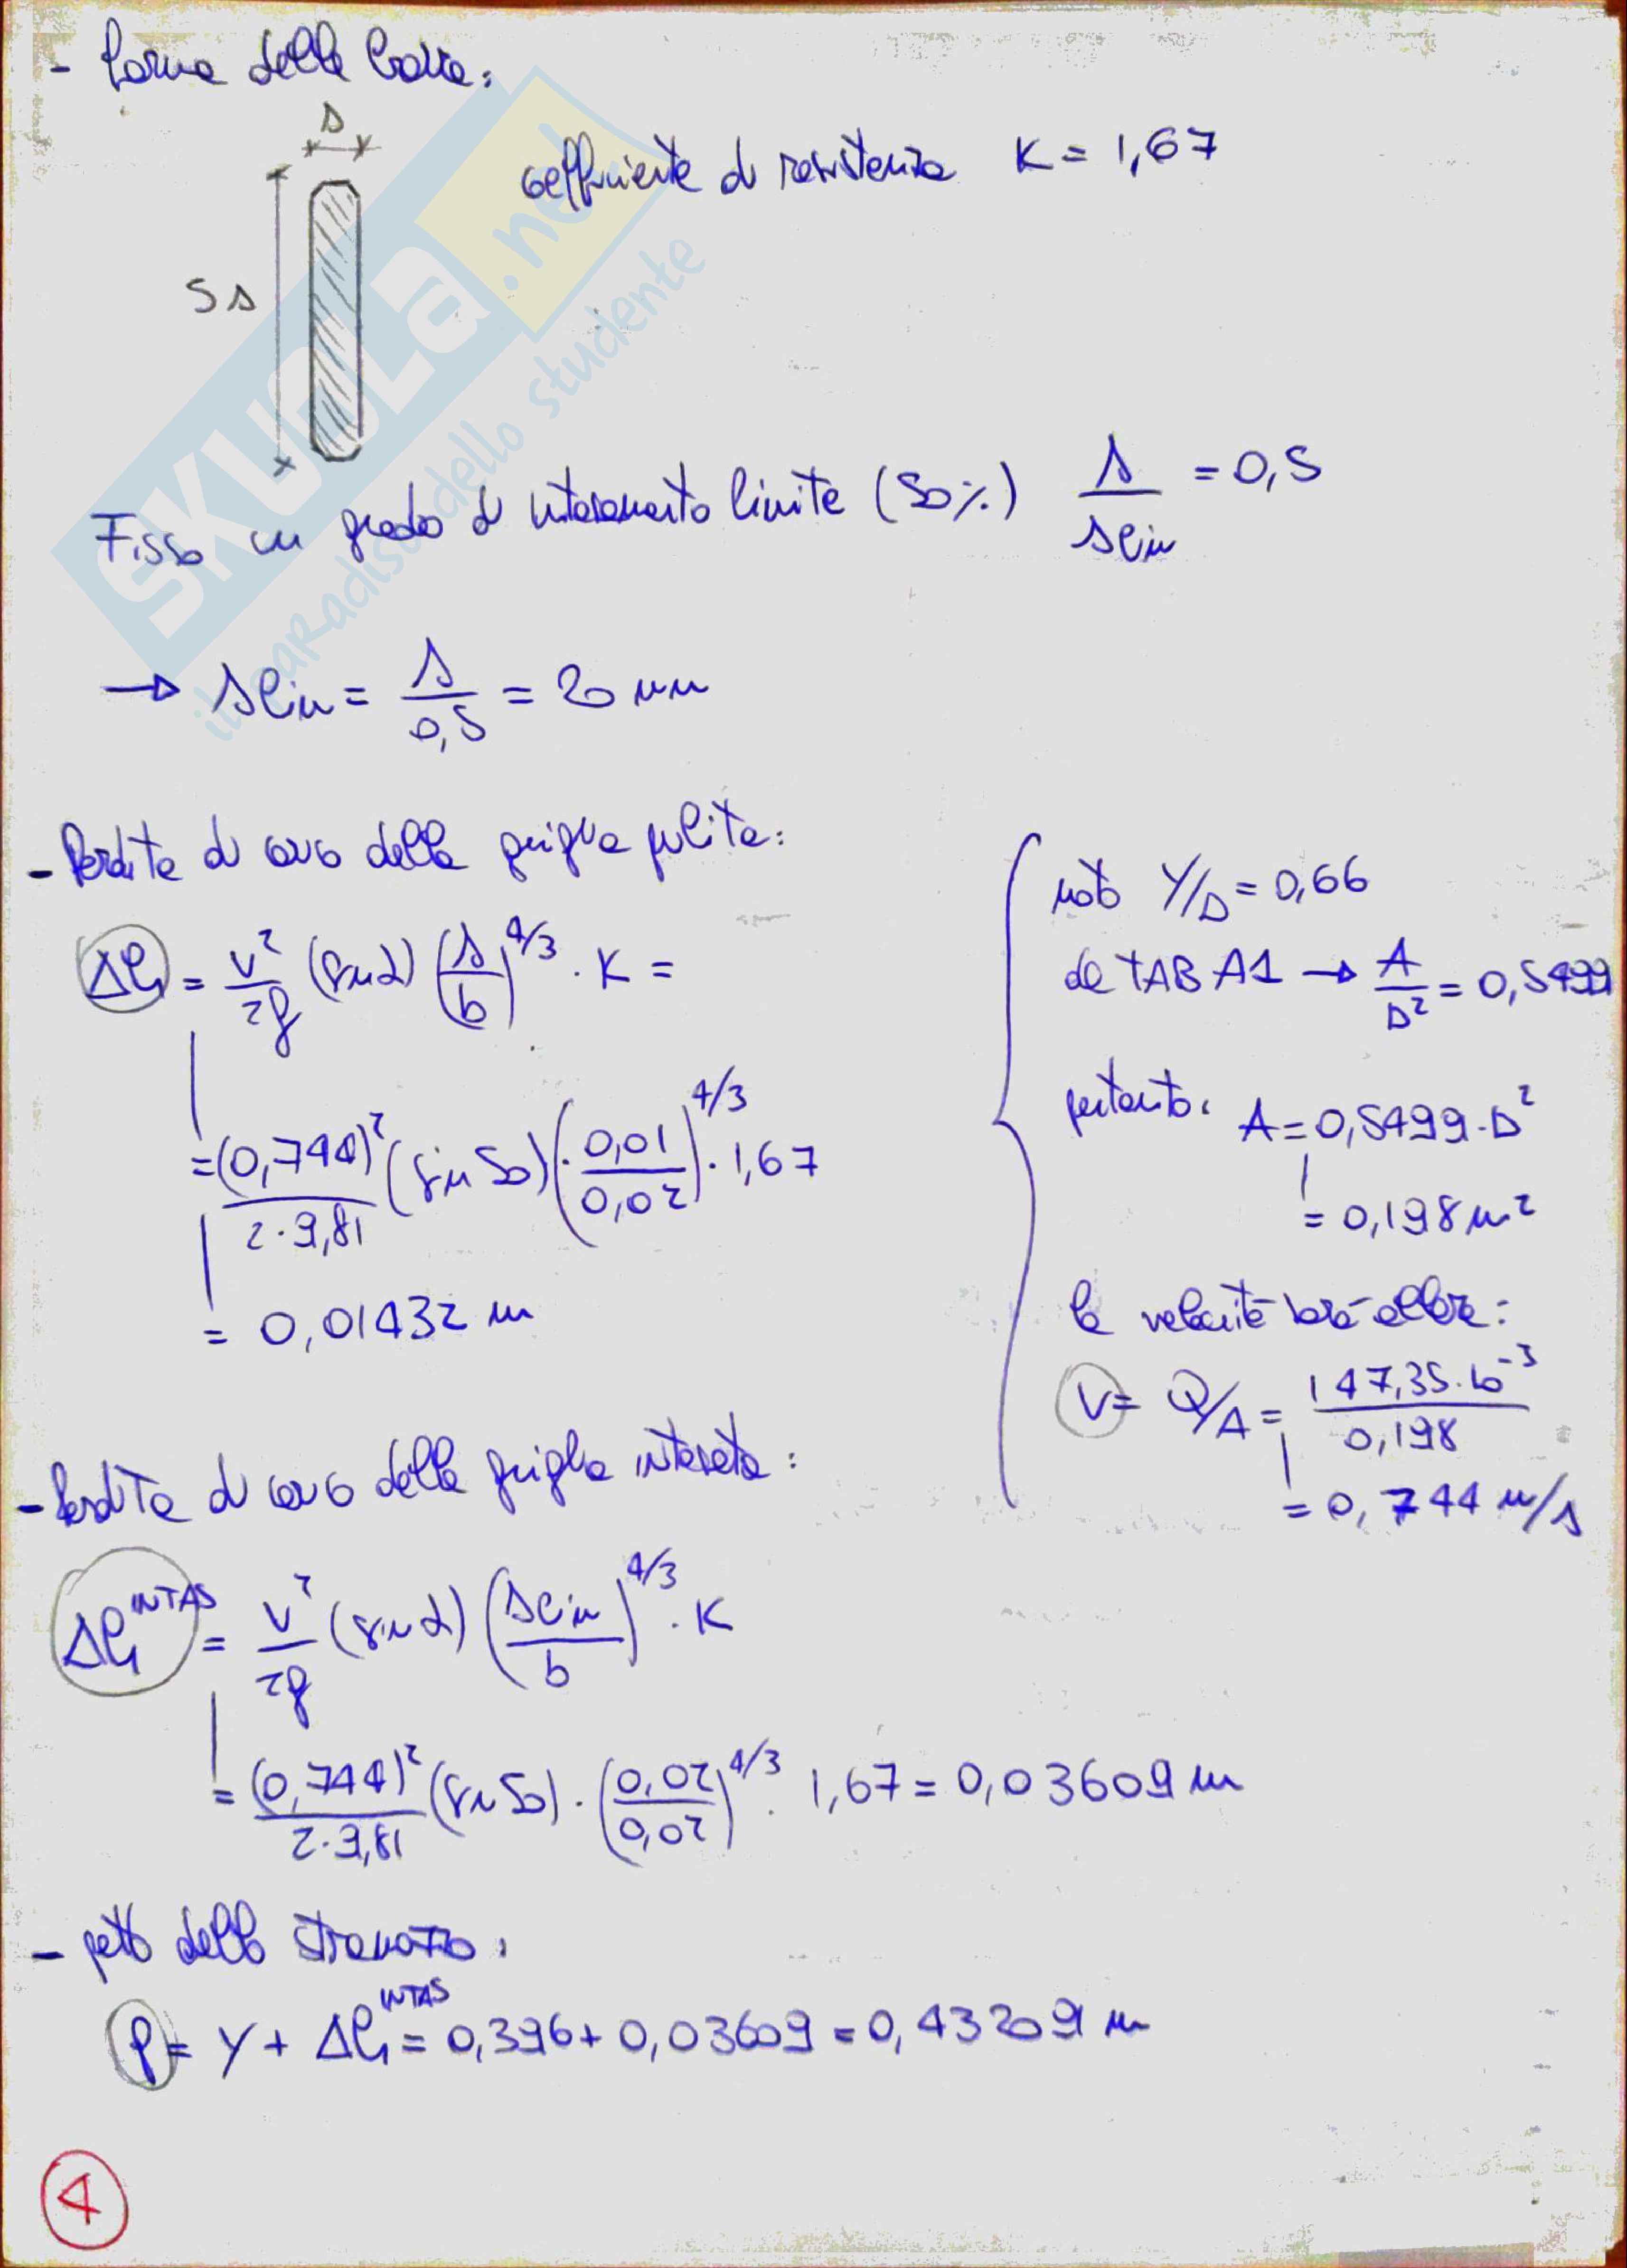 - forma delle barre:
s
coefficiente di resistenza K = 1,67
5s
Fisso un grado di intasamento limite (50%) s/slim = 0,5
→ slim = s/0,5 = 20 mm
- Perdite di carico della griglia pulita:
Δh = v²/2g (sin α) (s/b)^4/3 · K =
= (0,744)²/2·9,81 (sin 50) · (0,01/0,02)^4/3 · 1,67
= 0,01432 m
noto Y/D = 0,66
da TAB A1 → A/D² = 0,5499
pertanto: A = 0,5499 · D²
= 0,198 m²
la velocità sarà allora:
V = Q/A = 147,35·10^-3/0,198
= 0,744 m/s
- Perdite di carico della griglia intasata:
Δh^INTAS = v²/2g (sin α) (slim/b)^4/3 · K
= (0,744)²/2·9,81 (sin 50) · (0,02/0,02)^4/3 · 1,67 = 0,03609 m
- petto dello stramazzo:
p = Y + Δh^INTAS = 0,396 + 0,03609 = 0,43209 m
4
SKUOLa.net
il paRadiso dello studente